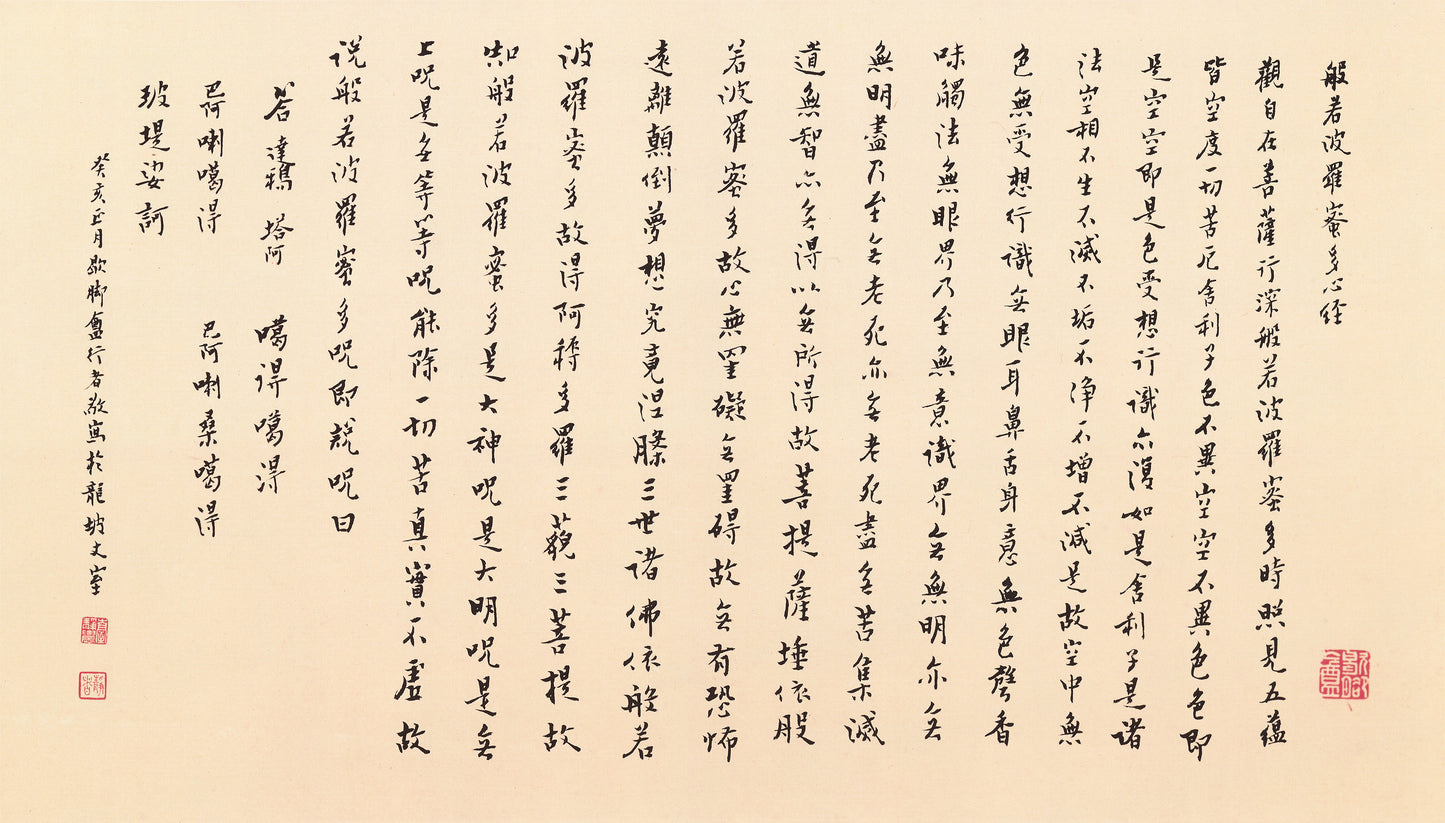 般若波羅蜜多心经
觀自在菩薩行深般若波羅蜜多時照見五蘊
皆空度一切苦厄舍利子色不異空空不異色色即
是空空即是色受想行識亦復如是舍利子是諸
法空相不生不滅不垢不净不增不減是故空中無
色無受想行識無眼耳鼻舌身意無色聲香
味觸法無眼界乃至無意識界無無明亦無
無明盡乃至無老死亦無老死盡無苦集滅
道無智亦無得以無所得故菩提薩埵依般
若波羅蜜多故心無罣礙無罣碍故無有恐怖
遠離顛倒夢想究竟涅槃三世諸佛依般若
波羅蜜多故得阿耨多羅三藐三菩提故
知般若波羅蜜多是大神呪是大明呪是無
上呪是無等等呪能除一切苦真實不虛故
说般若波羅蜜多呪即說呪曰
答達鴉 塔阿 噶得噶得
巴阿喇噶得 巴阿喇桑噶得
玻堤娑訶
癸亥正月歇脚盦行者敬寫於龍坡丈室